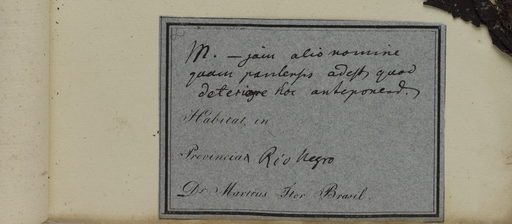 M. — jam alio nomine
quam paulensis adest, quod
deteriore hoc anteponend.
Habitat, in
Provincia Rio Negro
Dr. Martius Iter Brasil.